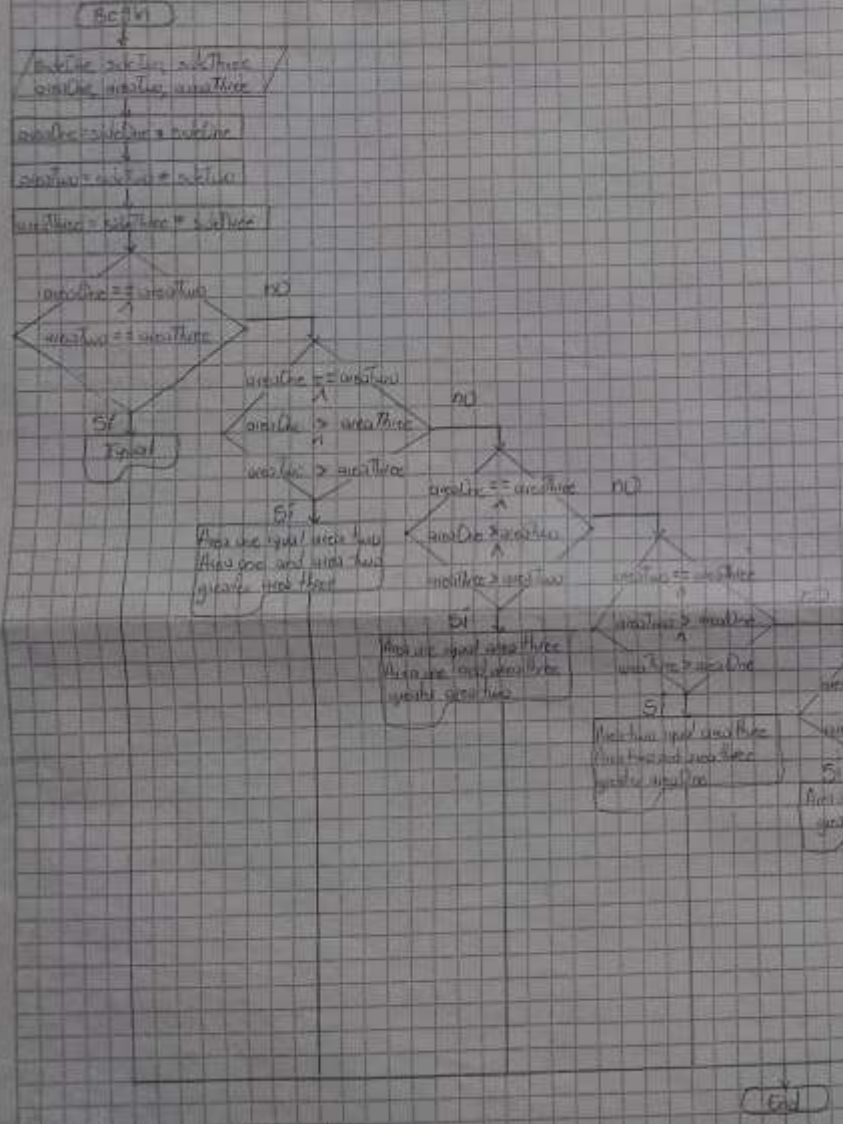 Begin
sideOne, sideTwo, sideThree
areaOne, areaTwo, areaThree
areaOne = sideOne * sideOne
areaTwo = sideTwo * sideTwo
areaThree = sideThree * sideThree
areaOne == areaTwo
^
areaTwo == areaThree
no
Sí
Equal
areaOne == areaTwo
^
areaOne > areaThree
^
areaTwo > areaThree
no
Sí
Area one equal area two
Area one and area two
greater area three
areaOne == areaThree
^
areaOne > areaTwo
^
areaThree > areaTwo
no
Sí
Area one equal area three
Area one and area three
greater area two
areaTwo == areaThree
^
areaTwo > areaOne
^
areaThree > areaOne
no
Sí
Area two equal area three
Area two and area three
greater areaOne
Sí
End